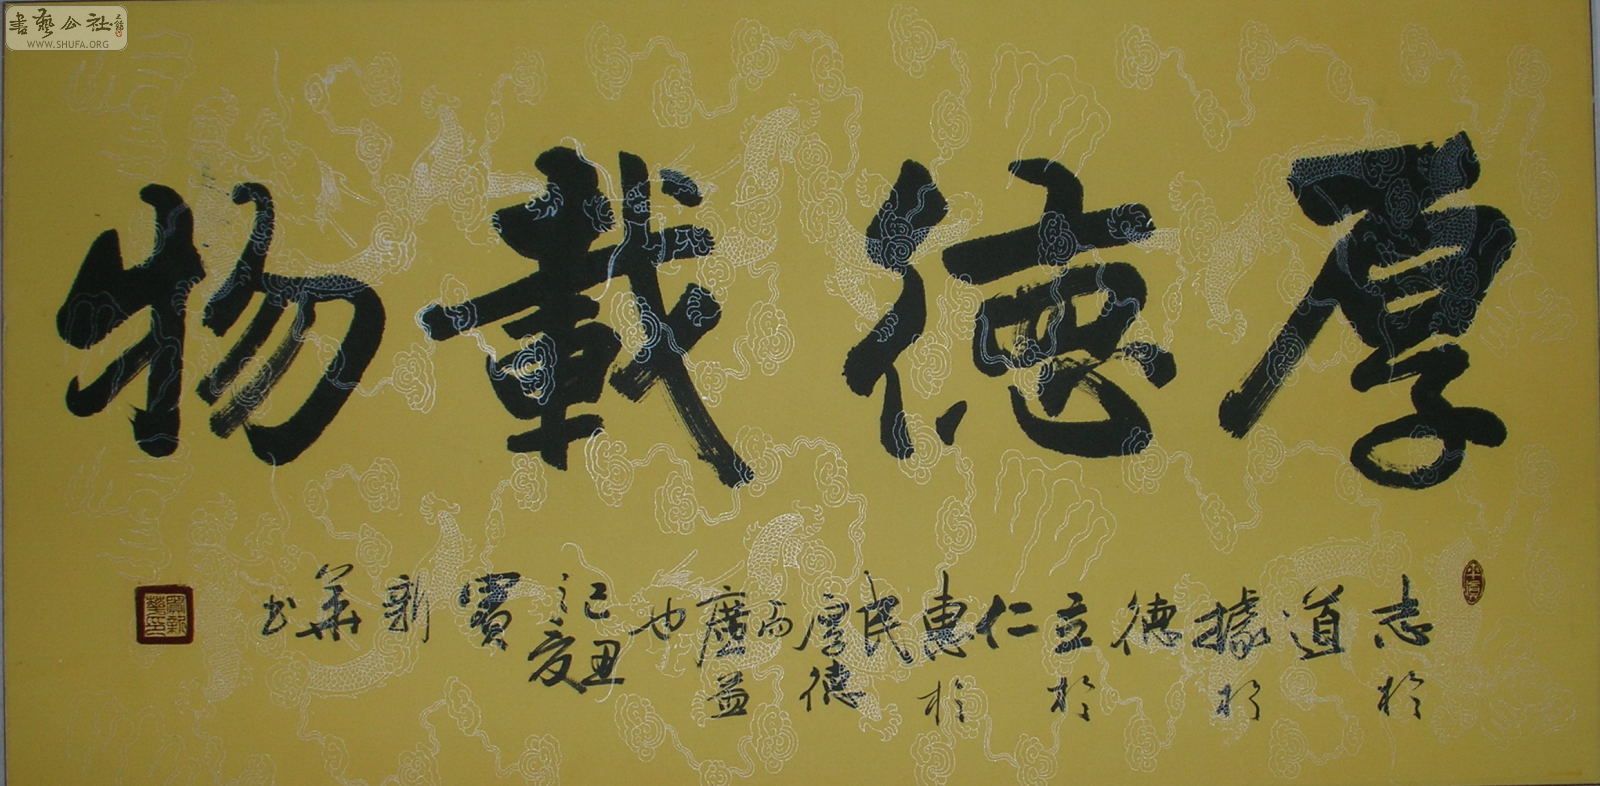 書藝公社
WWW.SHUFA.ORG
厚德載物
志於
道
據於
德
立於
仁
惠於
民
厚德
而
廣益
也
己丑
之夏
竇
新
華
书